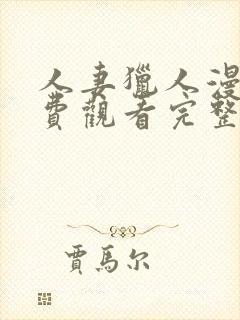 人妻獵人漫
費觀看完整
賈馬尔